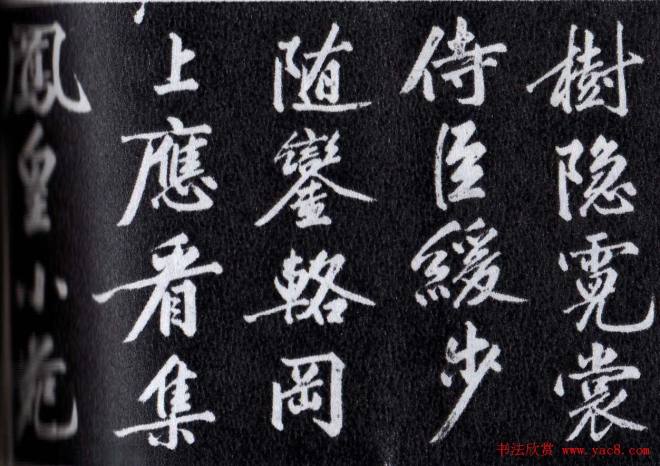 樹隐霓裳
侍臣緩步
随鑾輅岡
上應看集
鳳皇小苑
书法欣赏 www.yac8.com